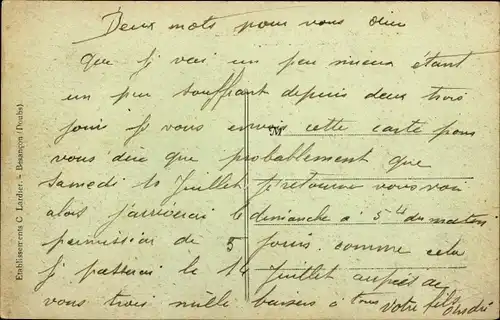 Deux mots pour vous dire
que je vai un peu mieux étant
un peu souffrant depuis deux trois
jours je vous envois cette carte pour
vous dire que probablement que
samedi 10 Juillet je retourne vous voir
alors j'arriverai le dimanche à 5 du matin
permission de 5 jours. comme cela
je passerai le 14 Juillet auprès de
vous trois mille baisers à tous
votre fils André
Etablissements C. Lardier. - Besançon (Doubs)